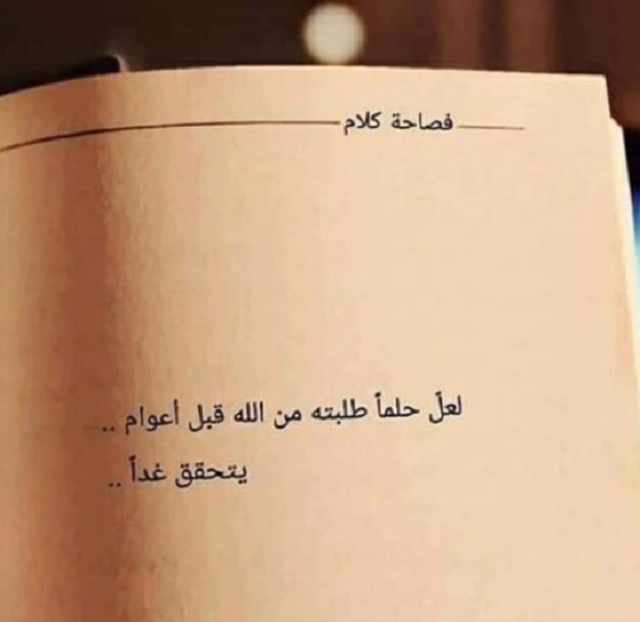 فصاحة كلام
لعلّ حلماً طلبته من الله قبل أعوام ..
يتحقق غداً ..